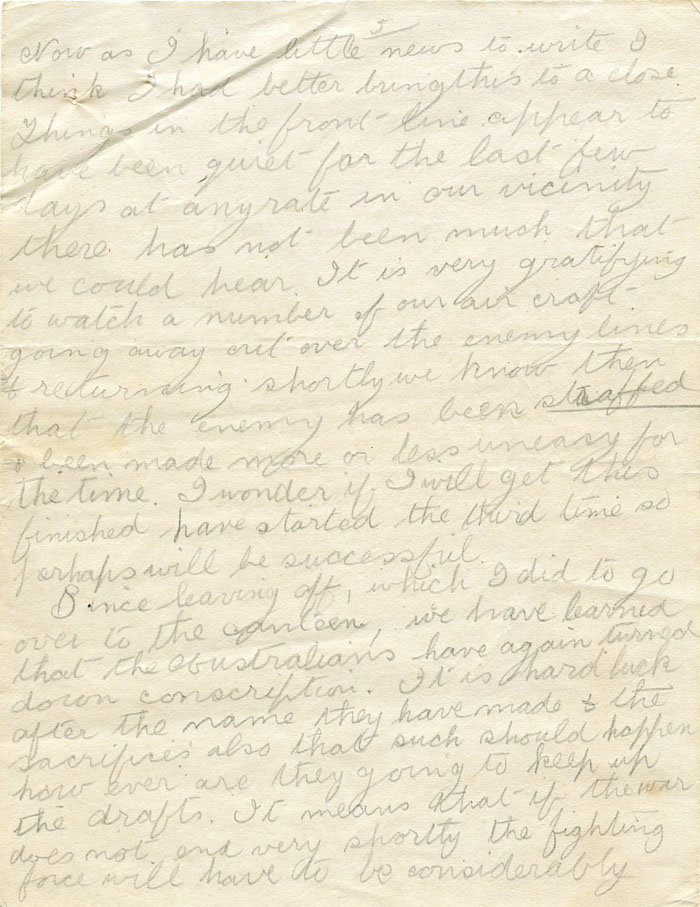 5
Now as I have little news to write I
think I had better bring this to a close
Things in the front line appear to
have been quiet for the last few
days at anyrate in our vicinity
there has not been much that
we could hear. It is very gratifying
to watch a number of our air craft
going away out over the enemy lines
& returning shortly we know then
that the enemy has been straffed
& been made more or less uneasy for
the time. I wonder if I will get this
finished have started the third time so
perhaps will be successful.
Since leaving off, which I did to go
over to the canteen, we have learned
that the Australians have again turned
down conscription. It is hard luck
after the name they have made & the
sacrifices also that such should happen
how ever are they going to keep up
the drafts. It means that if the war
does not end very shortly the fighting
force will have to be considerably